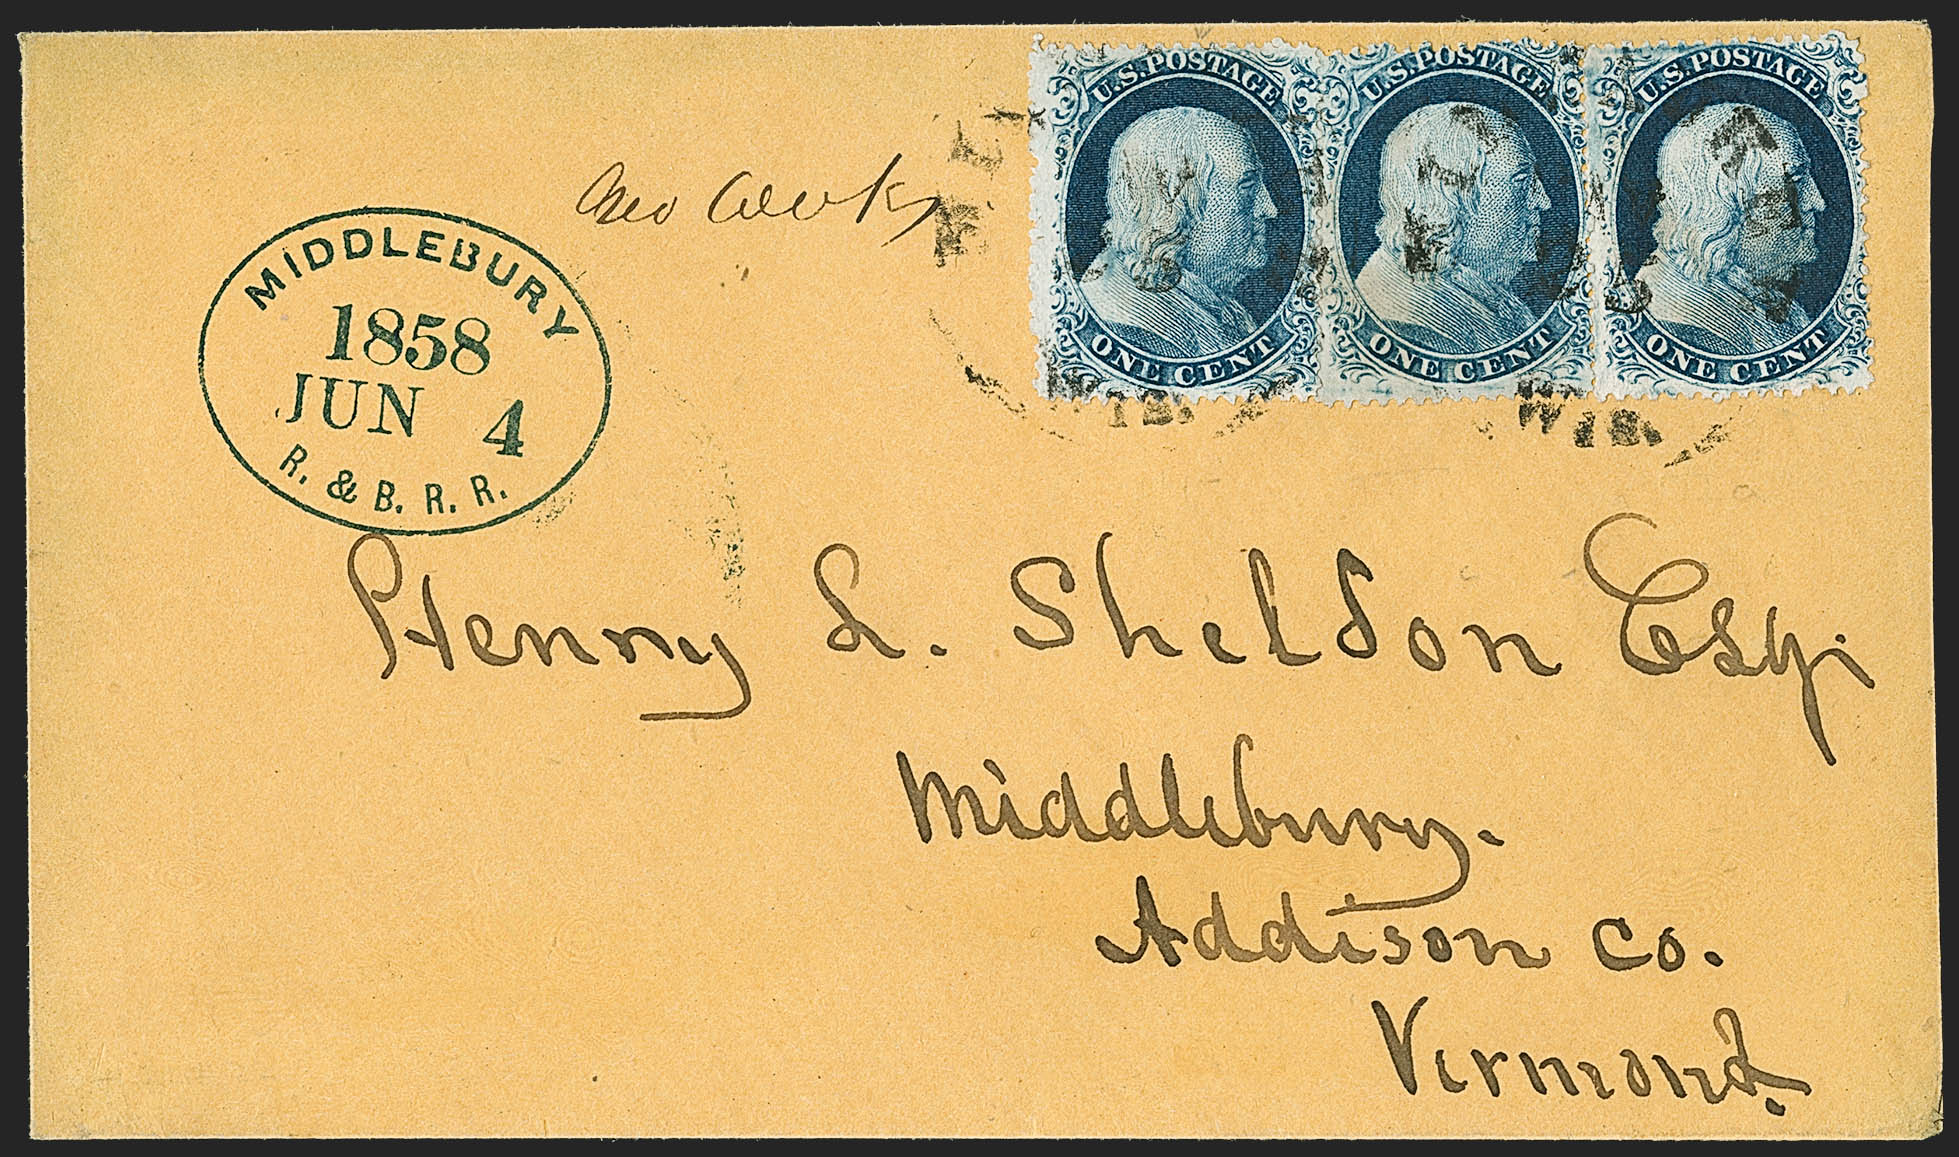 U.S. POSTAGE
ONE CENT
U.S. POSTAGE
ONE CENT
U.S. POSTAGE
ONE CENT
WIS.
WIS.
MIDDLEBURY
1858
JUN 4
R. & B. R. R.
Henry L. Sheldon Esq.
Middlebury.
Addison Co.
Vermont.